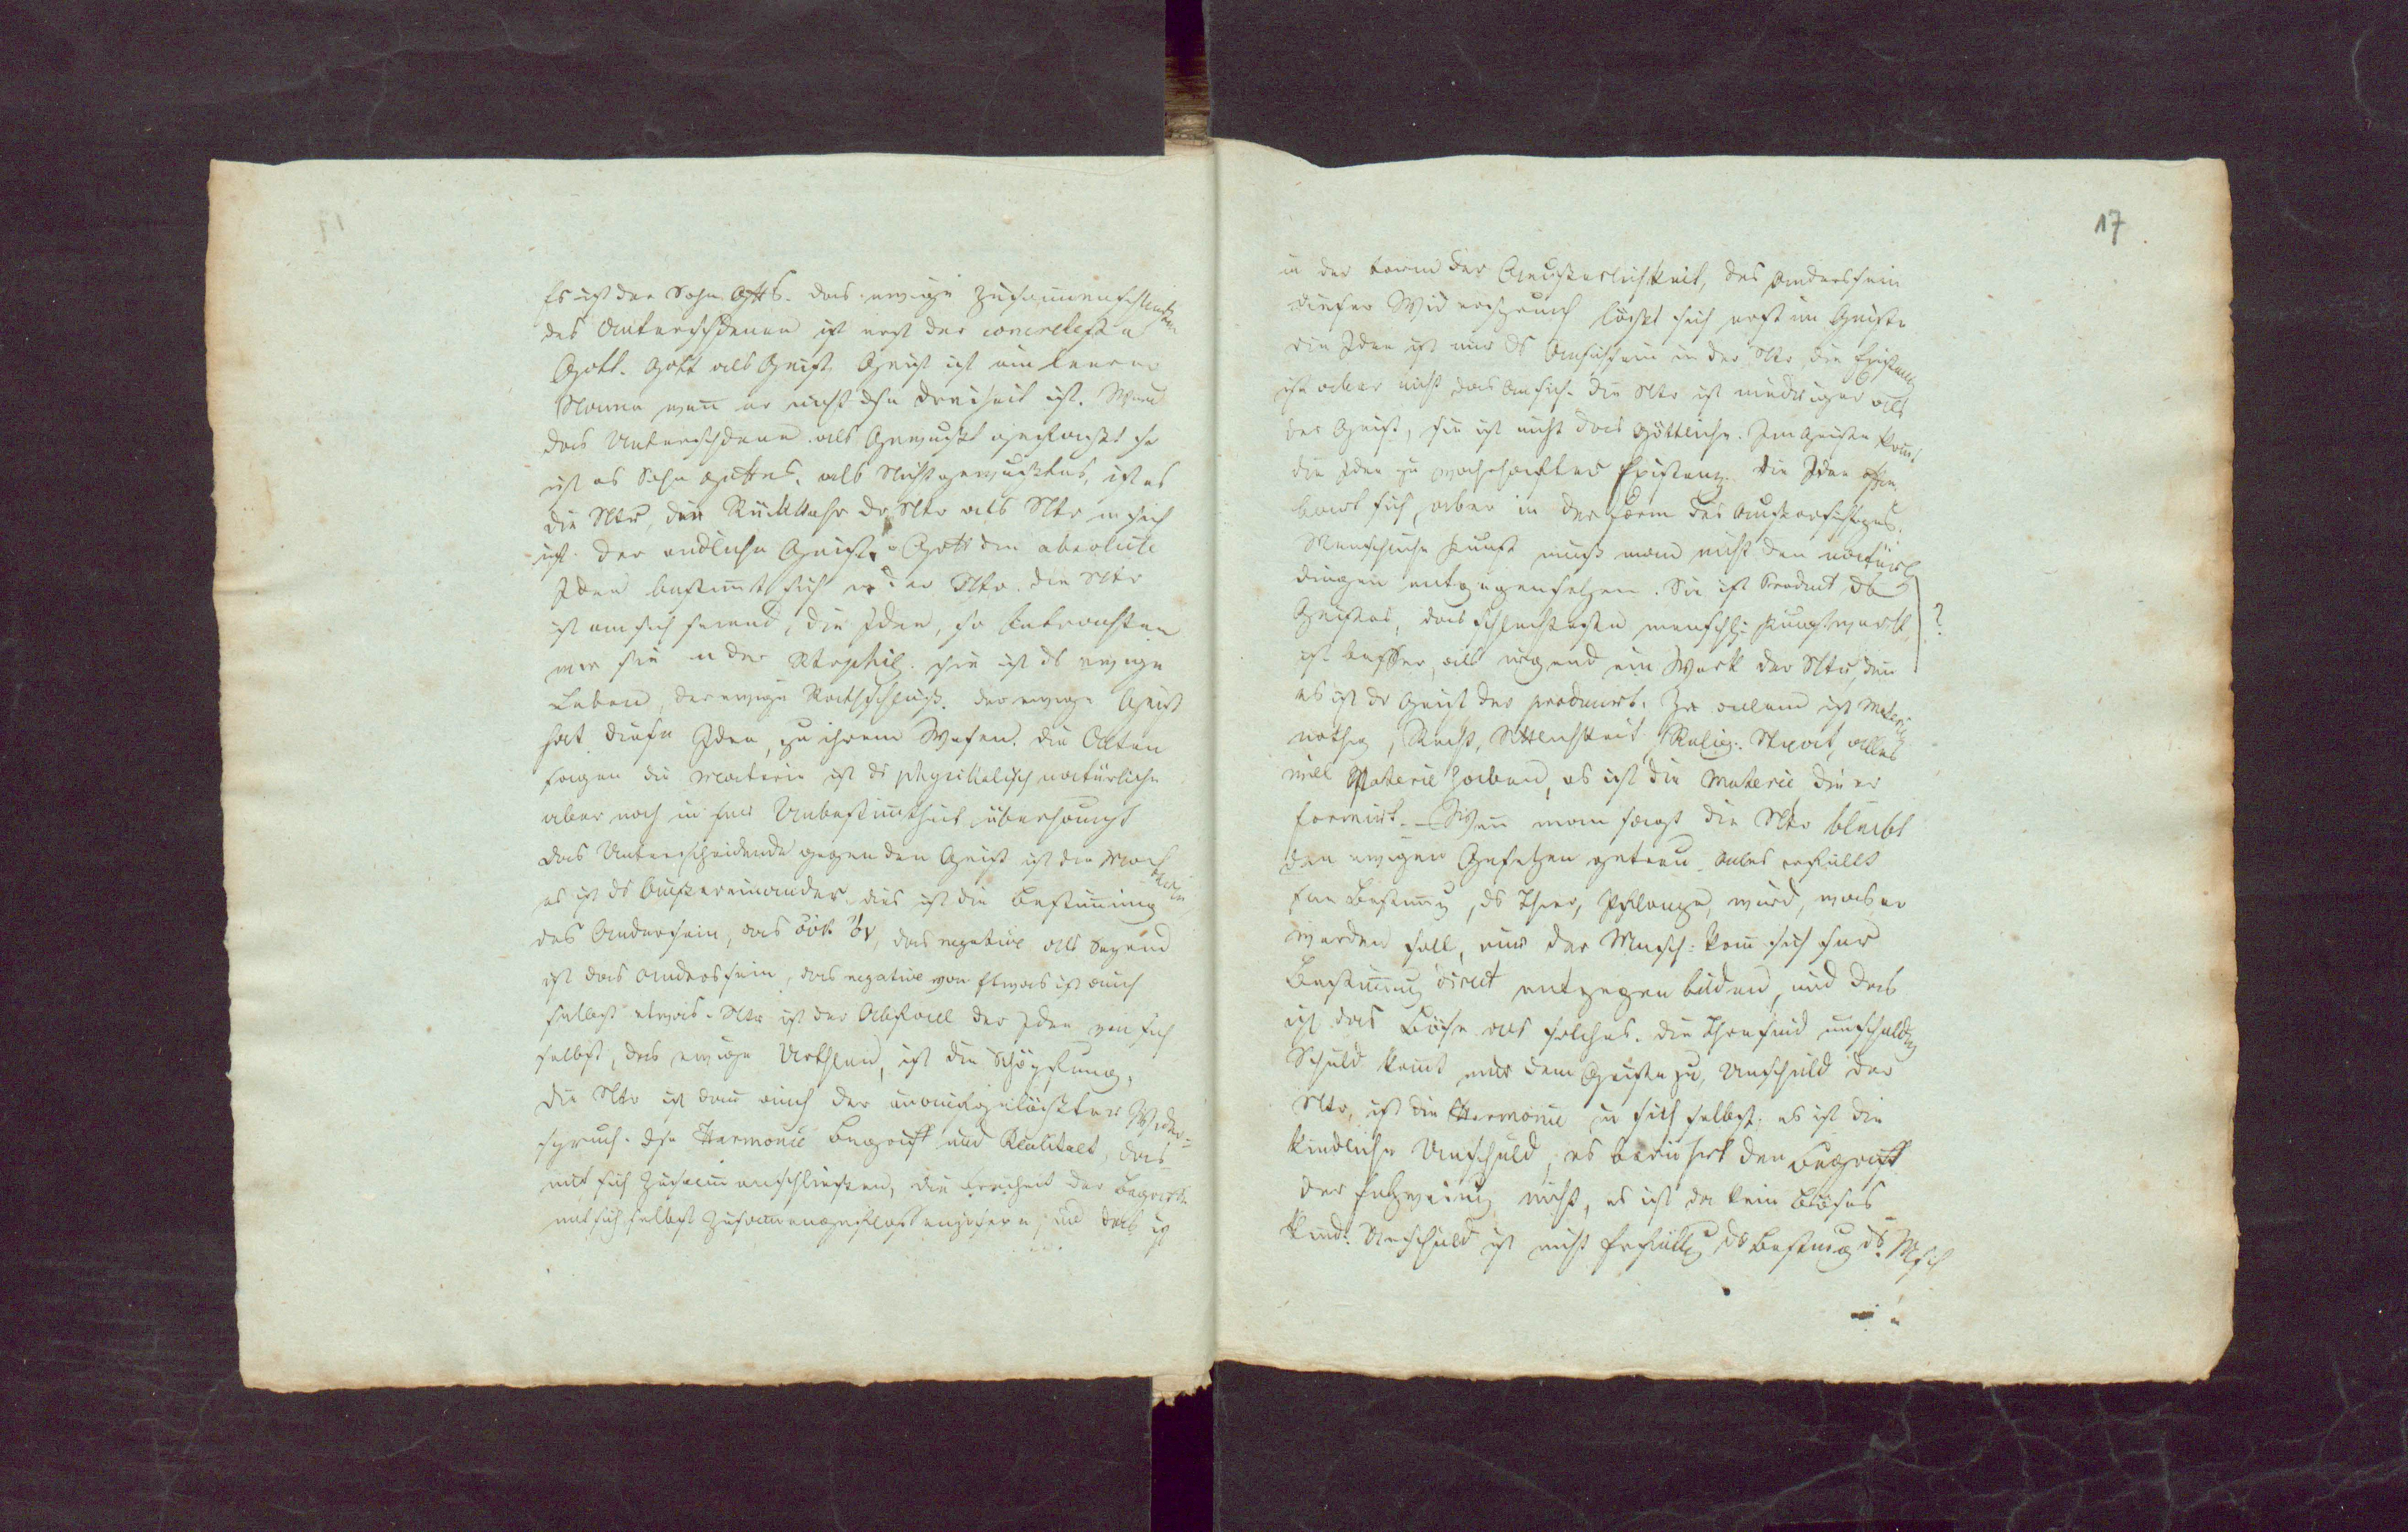 Es ist der Sohn Gotts. das ewige Zusammenschließen
des Unterschdenen ist erst der concreteste
Gott. Gott als Geist. Geist ist ein leerer
Name wenn er nicht dse Dreiheit ist. Wird
das Unterschdene als Gewußt gefaßt so
ist es Sohn Gottes. als Nichtgewußtes, ist es
die Ntr, die Rükkehr der Ntr als Ntr in sich
ist der endliche Geist. Gott die absolute
Idee bestimt sich in der Ntr. die Ntr
ist an sich seiend, die Idee, so betrachten
wir sie in der Ntrphil. sie ist ds ewige
Leben, der ewige Rathschluß. der ewige Geist
hat diese Idee, zu ihrem Wesen. die Alten
sagen die Materie ist ds physikalisch natürliche
aber noch in sr Unbestimtheit überhaupt
das Unterscheidende gegen den Geist ist die Materie
es ist ds Außereinander. dies ist die Bestimung
des Anderssein, das οὐκ ὄν, das negative als Seyend
ist das anderssein, das negative von Etwas ist auch
selbst etwas. Ntr ist der Abfall der Idee von sich
selbst, das ewige Urtheil, ist die Schöpfung.
die Ntr ist dann auch der unaufgelößte Wider-
spruch. dse Harmonie Begriff und Realitaet, das
mit sich zusammenschließen, die Freiheit der Begriff
mit sich selbst zusammengeschlossen und das ist
17
in der Form der Aeußerlichkeit, des Andersseins
dieser Widerspruch lößt sich erst im Geiste
die Idee ist nur ds Ansichsein in der Ntr, die Existenz
ist aber nicht das Ansich. die Ntr ist niedriger als
der Geist, sie ist nicht das Göttliche. Im Geiste komt
die Idee zu wahrhafter Existenz. die Idee offen-
bart sich, aber in der Form des Außersichseyns.
Menschliche Kunst muß man nicht den natürl
dingen entgegensetzen. Sie ist Product ds
Geistes, das schlechteste menschl: Kunstwerk, ?
ist besser, als irgend ein Werk der Ntr, den
es ist dr Geist der producirt. Zu allem ist Materie
nothig, Recht, Sittlichkeit, Religi: Staat, alles
will Materie haben, es ist die Materie die er
formirt. – Wenn man sagt die Ntr bleibt
den ewigen Gesetzen getreu. Alles erfüllt
sne Bestimg, ds Thier, Pflanze, wird, was es
werden soll, nur der Mensch: kann sich sr
Bestimung direct entgegen bilden, und das
ist das Böse als solches. die Thre sind unschuldig
Schuld komt nur dem Geiste zu, Unschuld der
Ntr, ist die Harmonie in sich selbst. es ist die
kindliche Unschuld, es berührt den Begriff
der Entzweiung nicht, es ist da kein Böses
Kind: Unschuld ist nicht Erfüllg dr Bestimg ds Msch